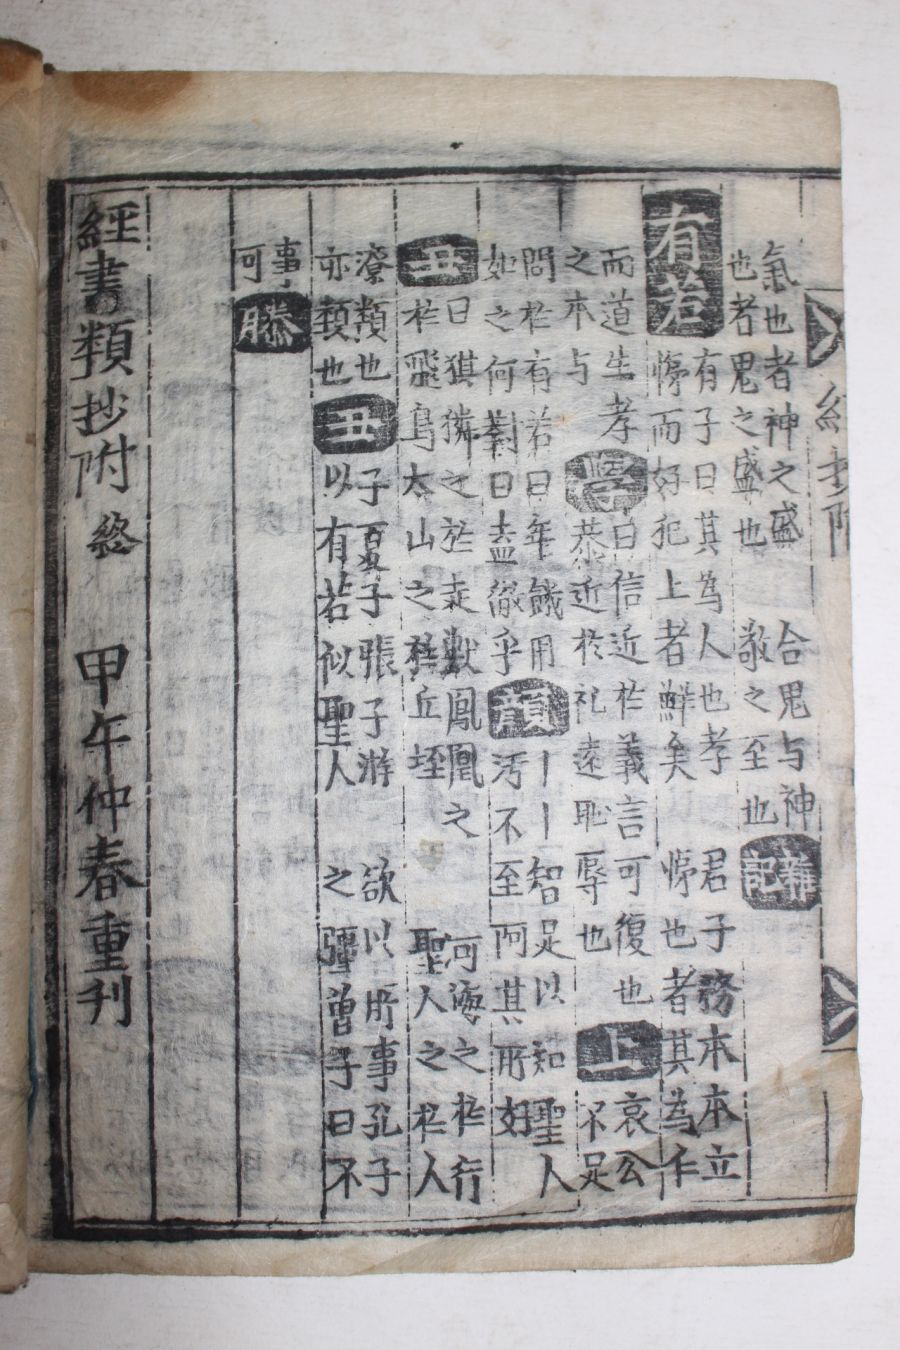 氣也者神之盛 合鬼与神
也者鬼之盛也 敬之至也 祭記
有若 有子曰其為人也孝 君子務本本立
悌而好犯上者鮮矣 悌也者其為仁
而道生孝 學 曰信近於義言可復也 上 哀公
之本与 恭近於礼遠恥辱也 不足
問於有若曰年饑用 顏 丨丨智足以知聖人
如之何對曰盍徹乎 汚不至阿其所好
丑 曰猉獜之於走獸鳳凰之 河海之於行
於飛鳥太山之於丘垤 聖人之於人
潦類也 丑 子夏子張子游 欲以所事孔子
亦類也 以有若似聖人 之彊曾子曰不
事
可 滕
經書類抄附 終 甲午仲春重刊
經抄附